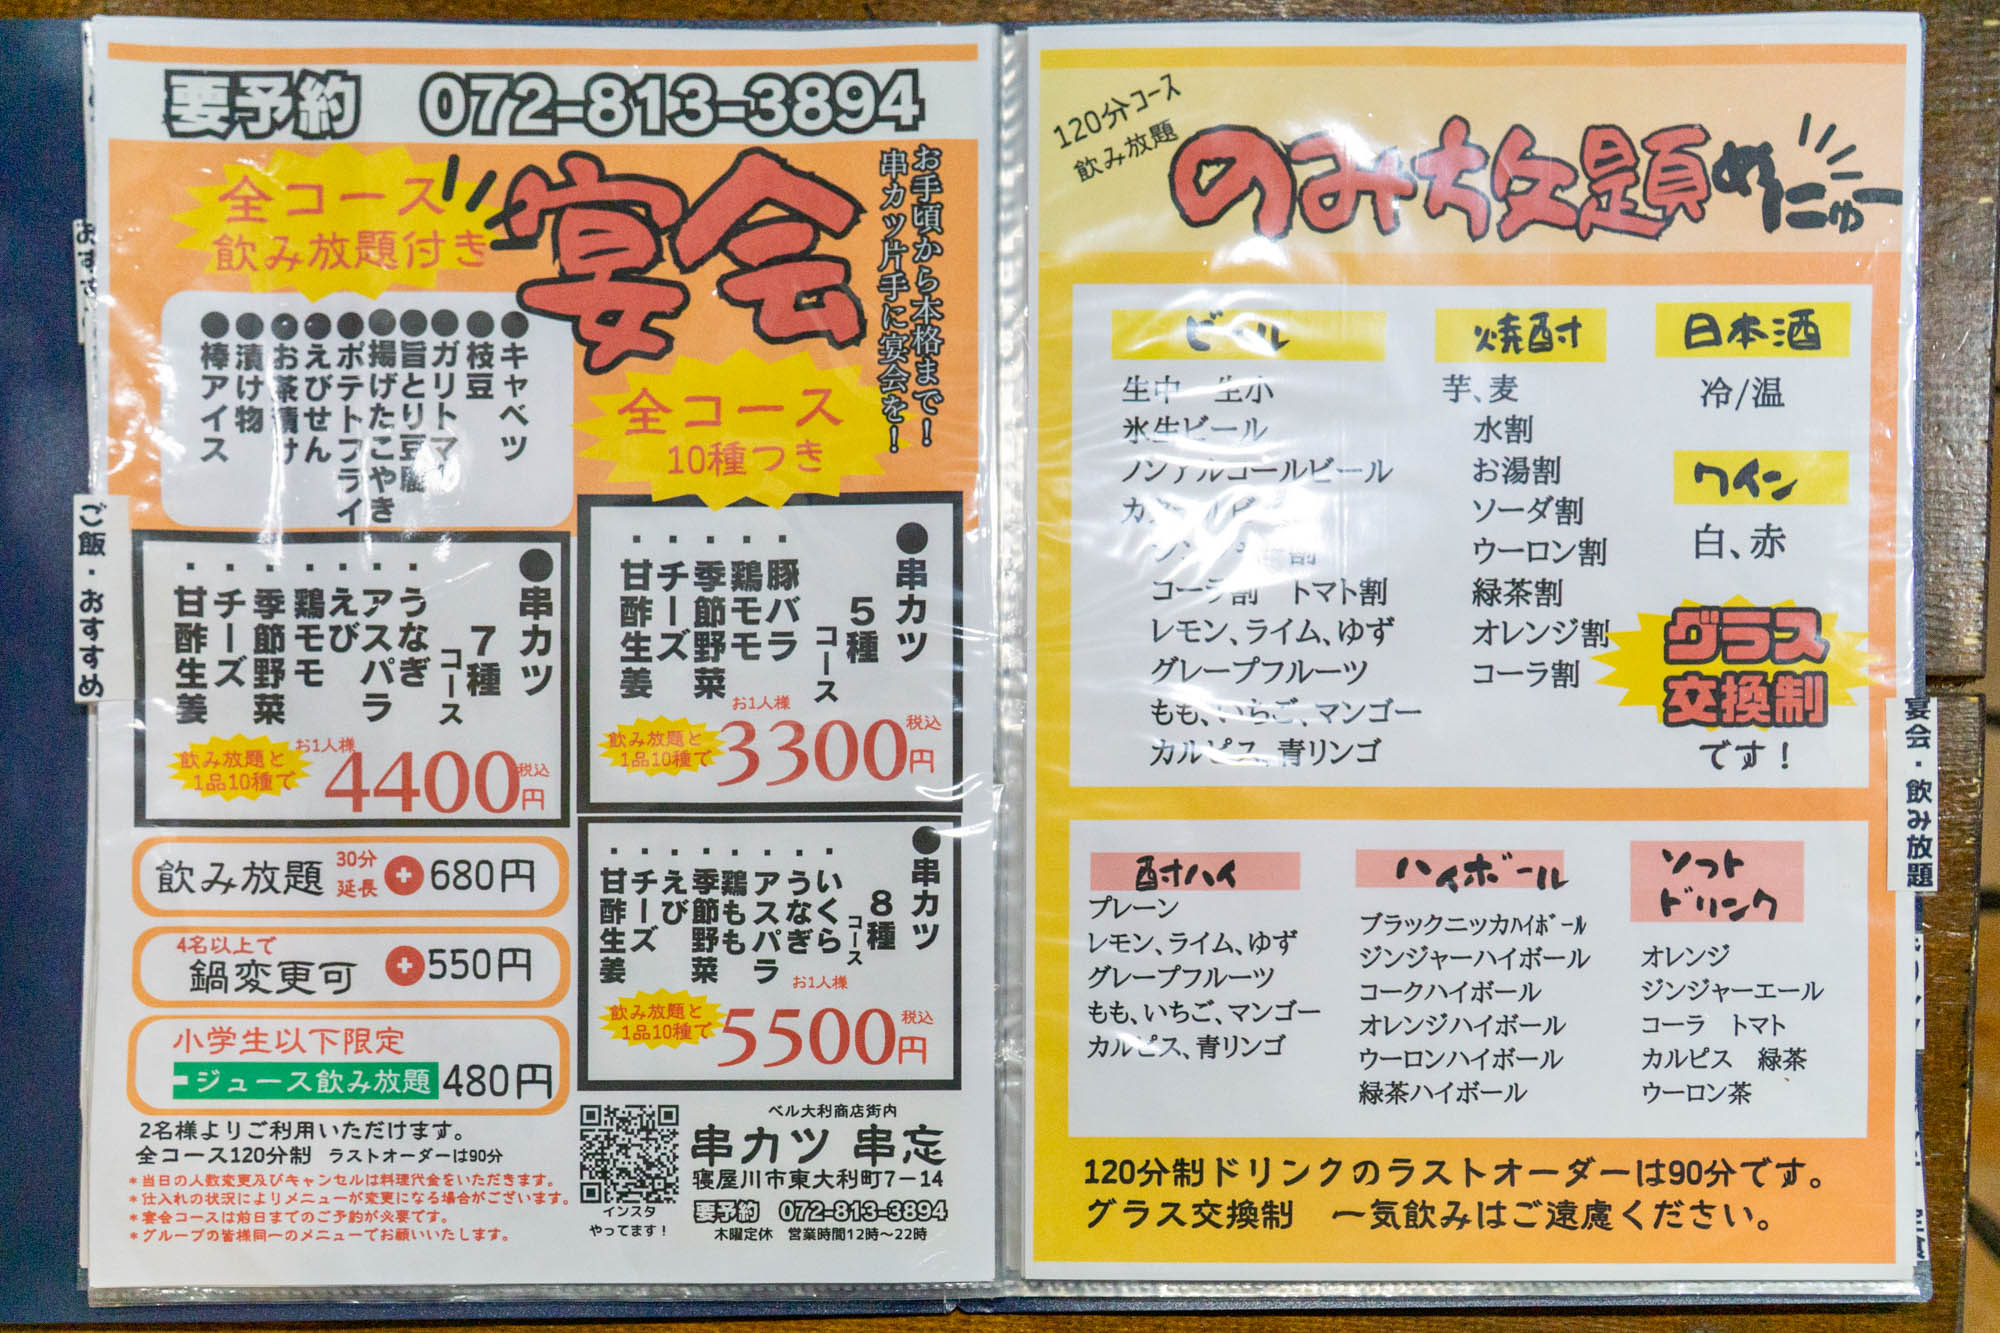 要予約 072-813-3894
全コース
飲み放題付き
宴会
お手頃から本格まで!
串カツ片手に宴会を!
●キャベツ
●枝豆
●ガリトマ
●旨とり豆腐
●揚げたこやき
●ポテトフライ
●えびせん
●お茶漬け
●漬け物
●棒アイス
全コース
10種つき
●串カツ
5種
コース
・豚バラ
・鶏モモ
・季節野菜
・チーズ
・甘酢生姜
飲み放題と
1品10種で
お1人様
3300円
税込
●串カツ
7種
コース
・うなぎ
・アスパラ
・えび
・鶏モモ
・季節野菜
・チーズ
・甘酢生姜
飲み放題と
1品10種で
お1人様
4400円
税込
●串カツ
8種
コース
・いくら
・うなぎ
・アスパラ
・鶏もも
・季節野菜
・えび
・チーズ
・甘酢生姜
飲み放題と
1品10種で
お1人様
5500円
税込
飲み放題 30分延長 +680円
4名以上で
鍋変更可 +550円
小学生以下限定
ジュース飲み放題 480円
2名様よりご利用いただけます。
全コース120分制 ラストオーダーは90分
*当日の人数変更及びキャンセルは料理代金をいただきます。
*仕入れの状況によりメニューが変更になる場合がございます。
*宴会コースは前日までのご予約が必要です。
*グループの皆様同一のメニューでお願いいたします。
インスタ
やってます!
ベル大利商店街内
串カツ 串忘
寝屋川市東大利町7-14
要予約 072-813-3894
木曜定休 営業時間12時~22時
ご飯・おすすめ
120分コース
飲み放題
のみ放題めにゅー
ビール
生中 生小
氷生ビール
ノンアルコールビール
コーラ割 トマト割
レモン、ライム、ゆず
グレープフルーツ
もも、いちご、マンゴー
カルピス、青リンゴ
焼酎
芋、麦
水割
お湯割
ソーダ割
ウーロン割
緑茶割
オレンジ割
コーラ割
日本酒
冷/温
ワイン
白、赤
グラス
交換制
です!
酎ハイ
プレーン
レモン、ライム、ゆず
グレープフルーツ
もも、いちご、マンゴー
カルピス、青リンゴ
ハイボール
ブラックニッカハイボール
ジンジャーハイボール
コークハイボール
オレンジハイボール
ウーロンハイボール
緑茶ハイボール
ソフト
ドリンク
オレンジ
ジンジャーエール
コーラ トマト
カルピス 緑茶
ウーロン茶
120分制ドリンクのラストオーダーは90分です。
グラス交換制 一気飲みはご遠慮ください。
宴会・飲み放題